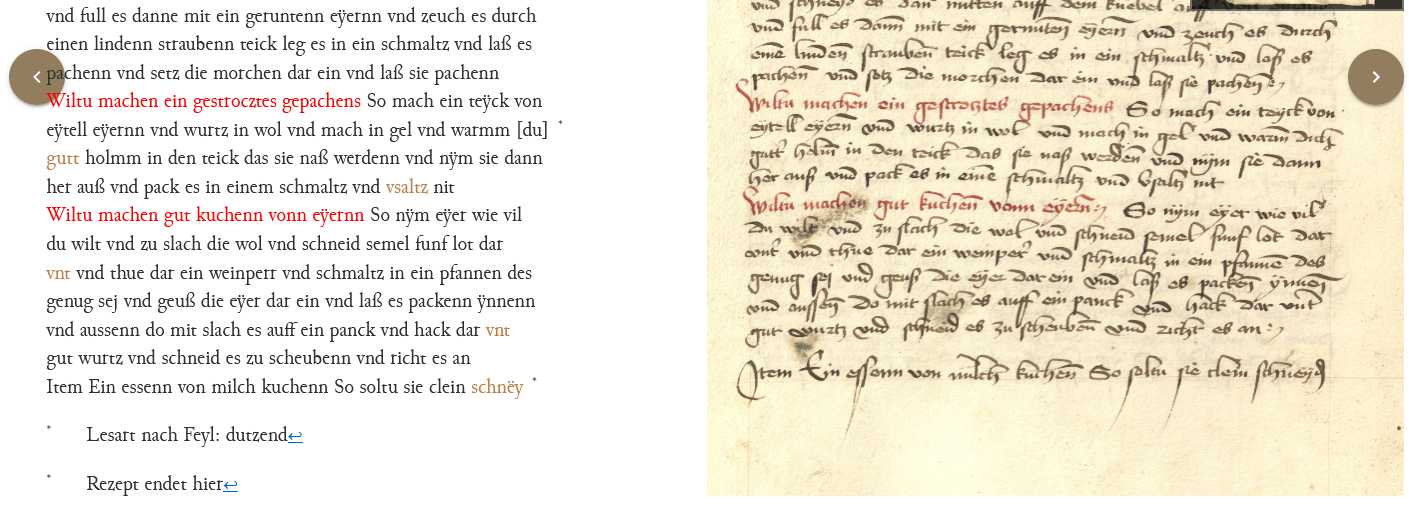 vnd full es danne mit ein geruntenn eÿernn vnd zeuch es durch
einen lindenn straubenn teick leg es in ein schmaltz vnd laß es
pachenn vnd setz die morchen dar ein vnd laß sie pachenn
Wiltu machen ein gestrocztes gepachens So mach ein teÿck von
eÿtell eÿernn vnd wurtz in wol vnd mach in gel vnd warmm [du] *
gutt holmm in den teick das sie naß werdenn vnd nÿm sie dann
her auß vnd pack es in einem schmaltz vnd vsaltz nit
Wiltu machen gut kuchenn vonn eÿernn So nÿm eÿer wie vil
du wilt vnd zu slach die wol vnd schneid semel funf lot dar
vnt vnd thue dar ein weinperr vnd schmaltz in ein pfannen des
genug sej vnd geuß die eÿer dar ein vnd laß es packenn ÿnnenn
vnd aussenn do mit slach es auff ein panck vnd hack dar vnt
gut wurtz vnd schneid es zu scheubenn vnd richt es an
Item Ein essenn von milch kuchenn So soltu sie clein schnëy *
* Lesart nach Feyl: dutzend↩
* Rezept endet hier↩
vnd full es dann mit ein gerunten eÿern vnd zeuch es durch
eine linden strauben teick leg es in ein schmaltz vnd laß es
pachen vnd setz die morchen dar ein vnd laß sie pachen
Wiltu machen ein gestrocztes gepachens So mach ein teyck von
eytell eÿern vnd wurtz in wol vnd mach in gel vnd warm
gutt helm in den teick das sie naß werden vnd nÿm sie dann
her auß vnd pack es in eine schmaltz vnd vsaltz nit
Wiltu machen gut kuchen vonn eÿern So nÿm eÿer wie vil
du wilt vnd zu slach die wol vnd schneid semel funf lot dar
vnt vnd thue dar ein weinper vnd schmaltz in ein pfanne des
genug sej vnd geuß die eÿer dar ein vnd laß es packen ÿnnen
vnd aussen do mit slach es auff ein panck vnd hack dar vnt
gut wurtz vnd schneid es zu scheuben vnd richt es an
Item Ein essenn von milch kuchen So soltu sie clein schneyd